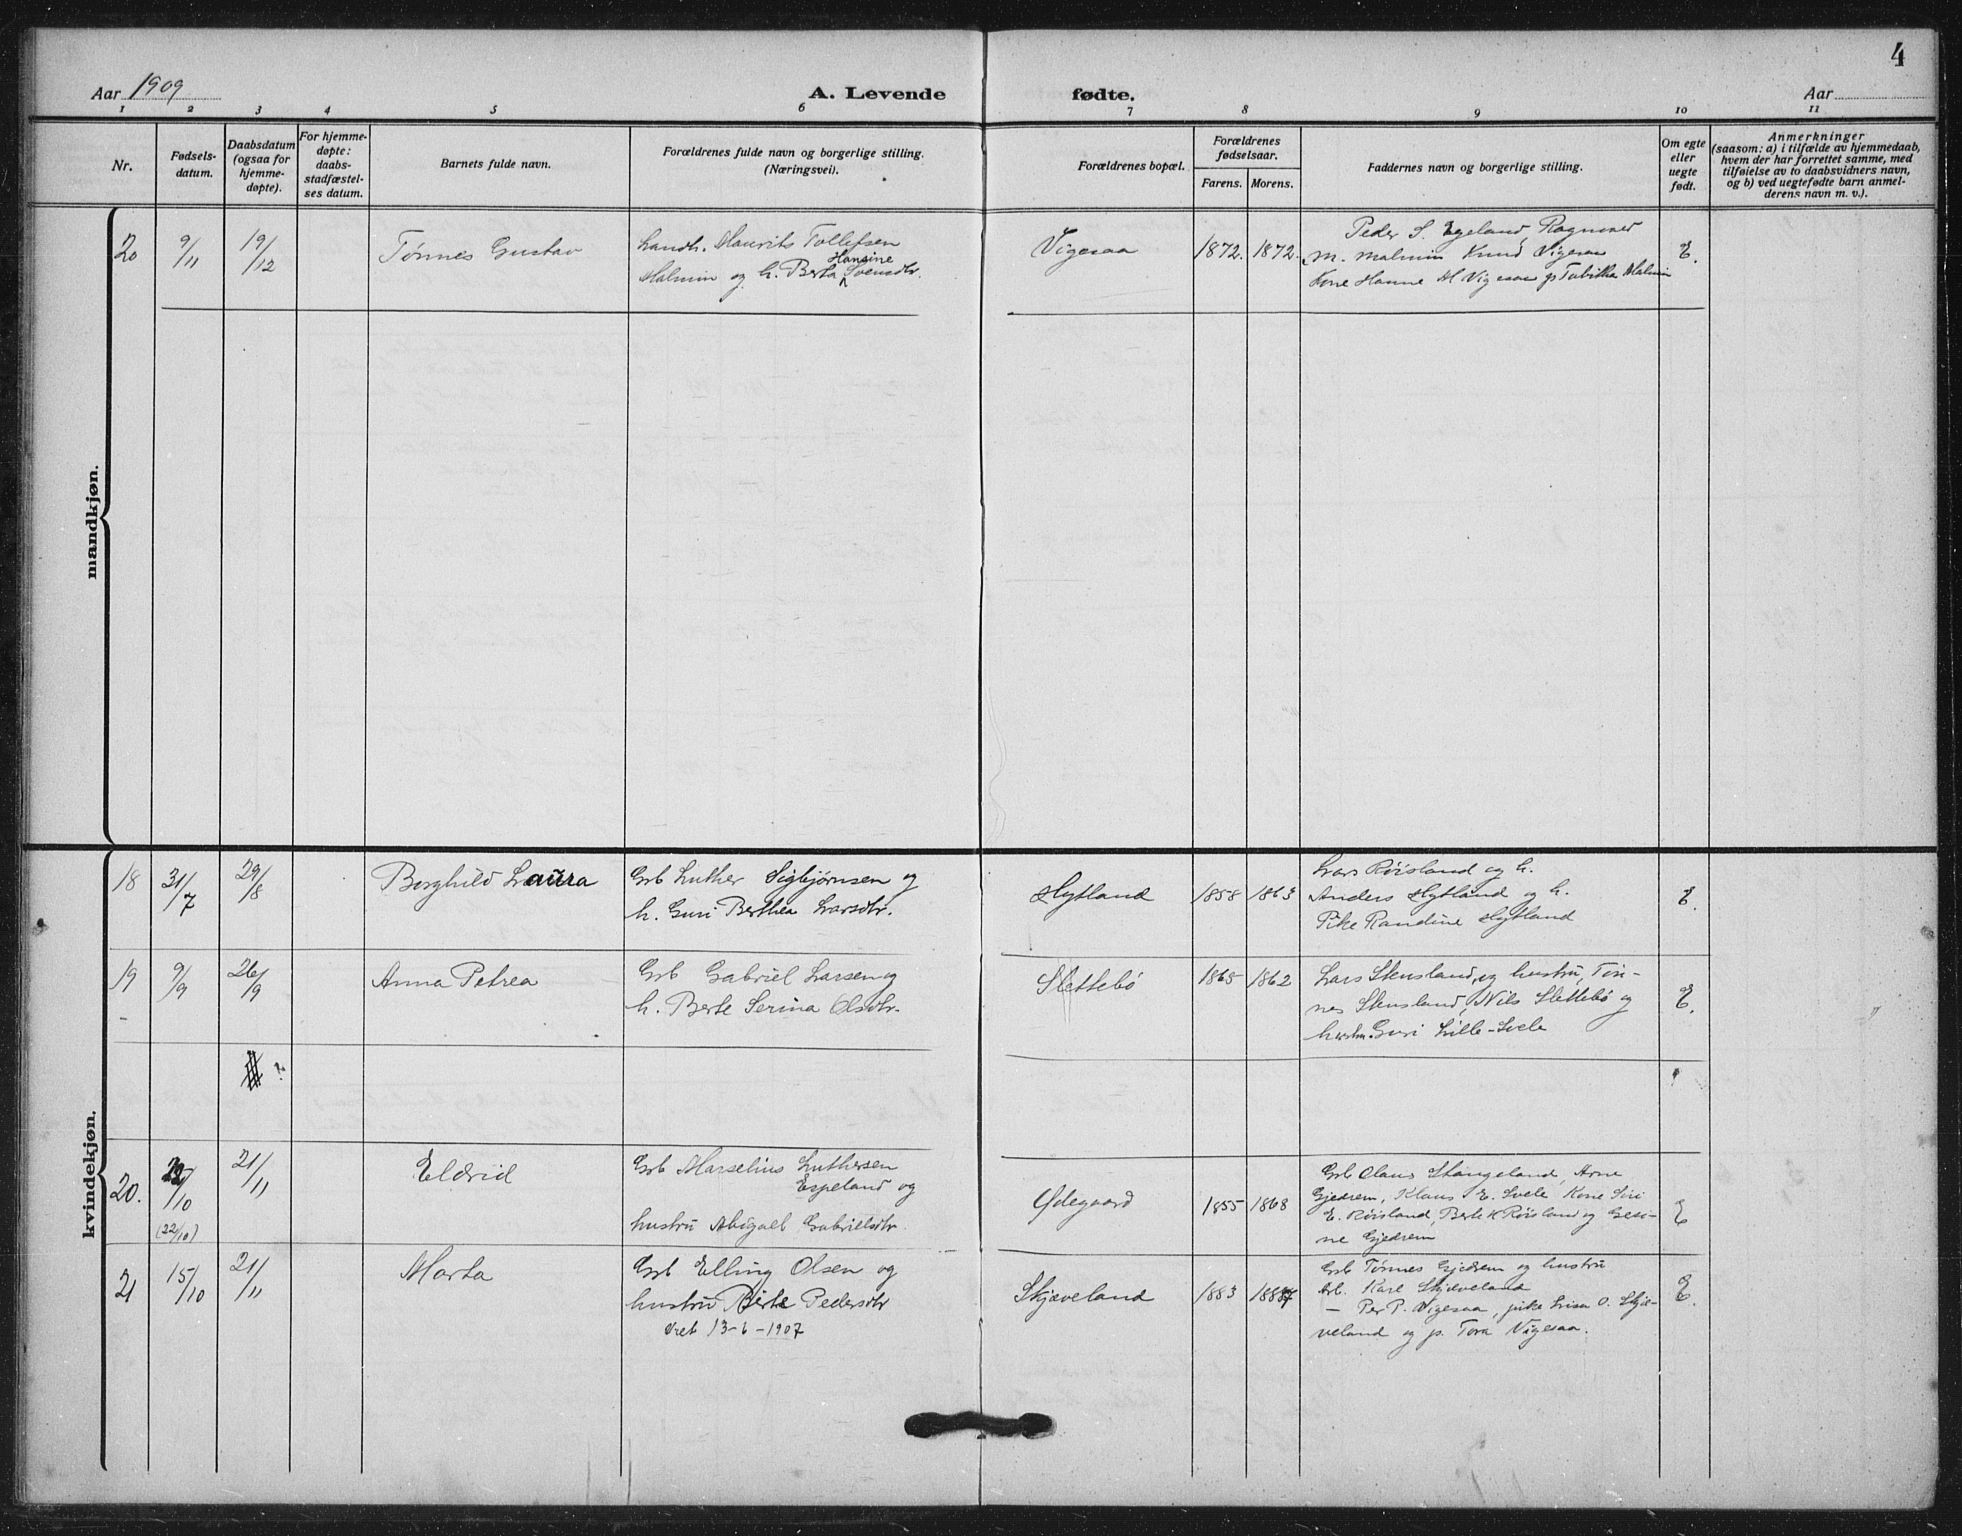 4
Aar 1909
A. Levende fødte.
Aar
1 2 3 4 5 6 7 8 9 10 11
Nr.
Fødsels-
datum.
Daabsdatum
(ogsaa for
hjemme-
døpte).
For hjemme-
døpte:
daabs-
stadfæstel-
ses datum.
Barnets fulde navn.
Forældrenes fulde navn og borgerlige stilling.
(Næringsvei).
Forældrenes bopæl.
Forældrenes
fødselsaar.
Farens. Morens.
Faddernes navn og borgerlige stilling.
Om egte
eller
uegte
født.
Anmerkninger
(saasom: a) i tilfælde av hjemmedaab,
hvem der har forrettet samme, med
tilføielse av to daabsvidners navn,
og b) ved uegtefødte barn anmel-
derens navn m. v.).
mandkjøn.
20
9/11
19/12
Tønnes Gustav
Landh. Maurits Tollefsen
Hansine
Malmin og h. Berta Svensdtr.
Vigesaa
1872. 1872.
Peder S. Egeland Ragnvald
M. Malmin Knud Vigesaa
Kone Hanne M Vigesaa p Tabitha Malmin
E.
kvindekjøn.
18
31/7
29/8
Borghild Laura
Grb Luther Sigbjørnsen og
h. Guri Berthea Larsdtr.
Hytland
1858 1863
Lars Røisland og h.
Anders Hytland og h.
Pike Randine Hytland
E.
19
9/9
26/9
Anna Petrea
Grb Gabriel Larsen og
h. Berte Serina Olsdtr.
Slettebø
1865 1862
Lars Stensland og hustru, Tøn-
nes Stensland, Nils Slettebø og
hustru Guri Lille-Svele
E.
?
20.
22/10
(22/10)
21/11
Eldrid
Grb Marselius Luthersen
Espeland og
hustru Abigael Gabrielsdtr.
Ødegaard
1855 1868
Grb Olaus Stangeland, Arne
Gjedrem, Klaus E. Svele Kone Siri
E. Røisland, Berte K Røisland og Gesi-
ne Gjedrem
E
21
15/10
21/11
Marta
Grb Elling Olsen og
hustru Berte Pedersdtr
Viet 13-6-1907
Skjæveland
1883 1887
Grb Tønnes Gjedrem og hustru
Grb. Karl Skjæveland
— Per P. Vigesaa, pike Lisa O. Skjæ-
veland og p. Tora Vigesaa.
E.